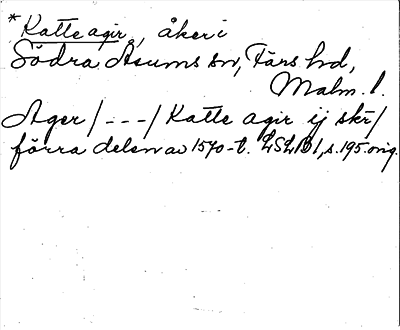 *Katte agir, åker i
Södra Åsums sn, Färs hd,
Malm. l.
Ager/---/Katte agir ij skr/
förra delen av 1570-t. LSLB1, s. 195 orig.